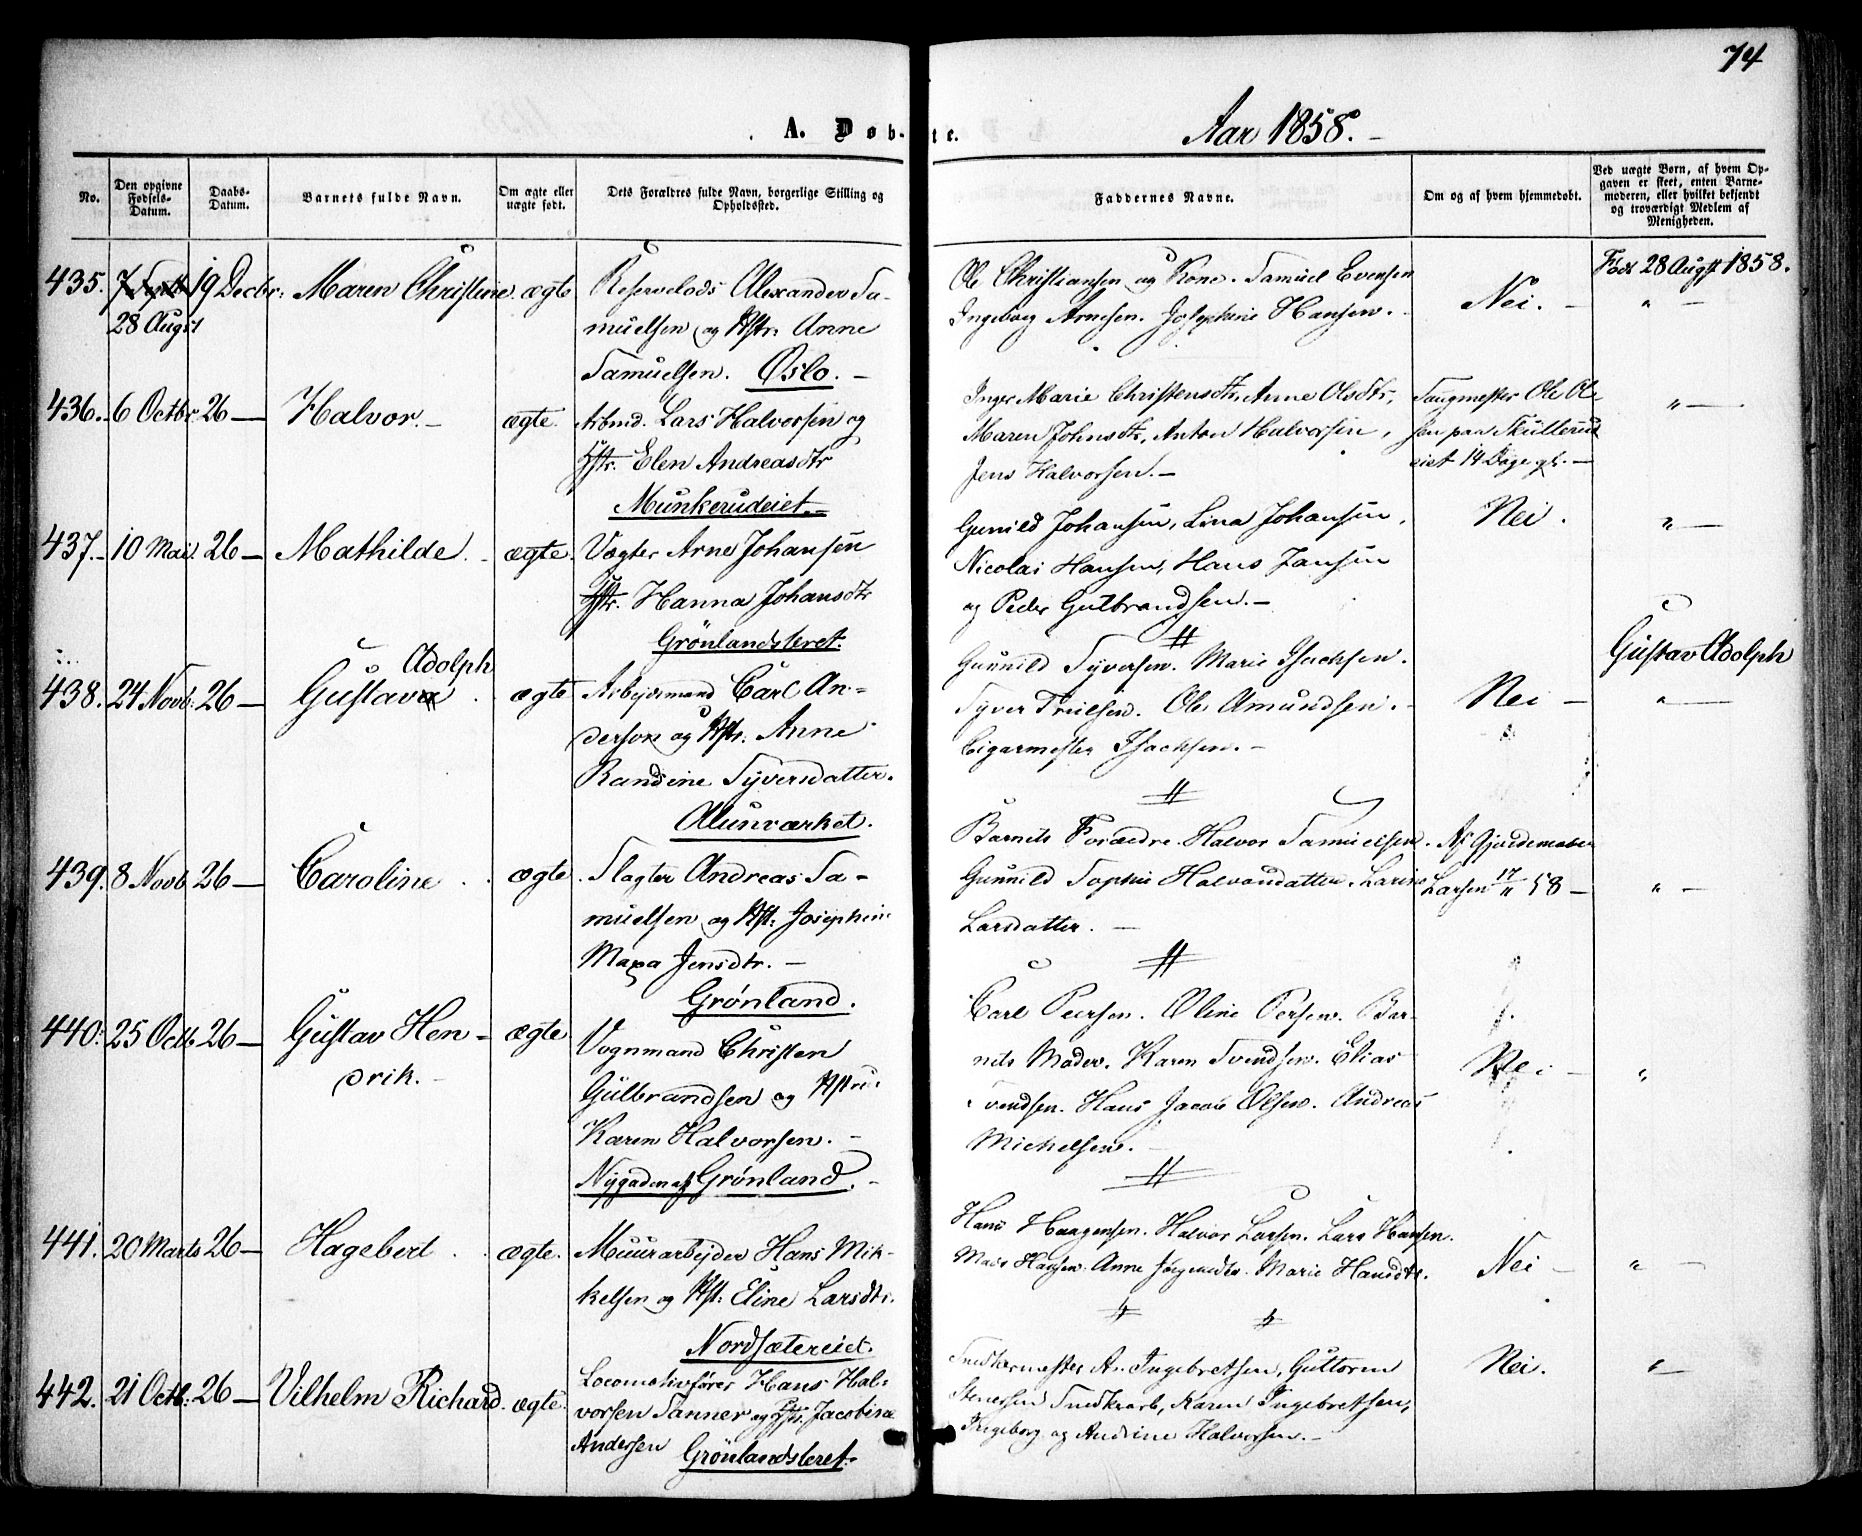 74
A. Døb- te. Aar 1858. –
No.
Den opgivne Fødsels-Datum.
Daabs-Datum.
Barnets fulde Navn.
Om ægte eller uægte født.
Dets Forældres fulde Navn, borgerlige Stilling og Opholdssted.
Faddernes Navne.
Om og af hvem hjemmedøbt.
Ved uægte Børn, af hvem Opgaven er skeet, enten Barnemoderen, eller hvilket bekjendt og troværdigt Medlem af Menigheden.
435. 7 Septb 19 Decbr. Maren Christine. ægte
28 August
Reservelods Alexander Sa-
muelsen og Hstr. Anne
Samuelsen. Oslo. –
Ole Christiansen og Kone. Samuel Evensen
Ingeborg Arnesen. Josephine Hansen.
Nei. –
Født 28 Augst 1858.
" –
436. 6 Octbr 26 – Halvor. – ægte.
Arbmd. Lars Halvorsen og
Hstr. Elen Andreasdtr
Munkerudeiet. –
Inger Marie Christensdtr, Anne Olsdtr,
Maren Johnsdtr, Anton Halvorsen,
Jens Halvorsen. –
Saugmester Ole Ole
sen paa Skullerud
eiet 14 Dage gl. –
" –
437. – 10 Mai 26 – Mathilde. – ægte.
Vægter Arne Johansen
Hstr. Hanna Johansdtr
Grönlandsleret.
Gunild Johansen, Lina Johansen,
Nicolai Hansen, Hans Jansen
og Peder Gulbrandsen. –
Nei.
" –
438. 24 Novb. 26 – Gustava Adolph. ægte
Arbejdsmand Carl An-
derson og Hstr. Anne
Randine Syversdatter.
Alunværket.
Gunnild Syversen. Marie Isachsen.
Syver Truelsen. Ole Amundsen.
Cigarmester Isachsen. –
Nei –
Gustav Adolph
" –
439. 8 Novb 26 – Caroline. ægte.
Slagter Andreas Sa-
muelsen og Hst. Josephine
Maxa Jensdtr. –
Grønland.
Barnets Forældre. Halvor Samuelsen.
Gunnild Sophie Halvorsdatter. Larine
Larsdatter. –
Af Gjordemoder
Larsen 17/11 58 –
" –
440. 25 Octb 26 – Gustav Hen- ægte
drik. –
Vognmand Christen
Gulbrandsen og Hstru
Karen Halvorsen. –
Nygaden af Grønland. –
Carl Peersen. Oline Persen. Bar-
nets Moder. Karen Svendsen. Elias
Svendsen. Hans Jacob Olsen. Andreas
Michelsen. –
Nei –
"
441. 20 Marts 26 – Hagebert. ægte.
Muurarbejder Hans Mik-
kelsen og Hst. Eline Larsdtr.
Nordsætereiet.
Hans Haagensen. Halvor Larsen. Lars Hansen.
Mads Hansen. Anne Jörgensdtr. Marie Hansdtr.
Nei –
" –
442. 21 Octb. 26 – Vilhelm Richard. ægte.
Locomotivfører Hans Hal-
vorsen Sanner og Hstr. Jacobine
Andersen Grönlandsleret.
Snedkermester A. Ingebretsen, Guttorm
Stenersen Snedkrarb, Karen Ingebretsen,
Ingeborg og Andrine Halvorsen. –
Nei.
" –